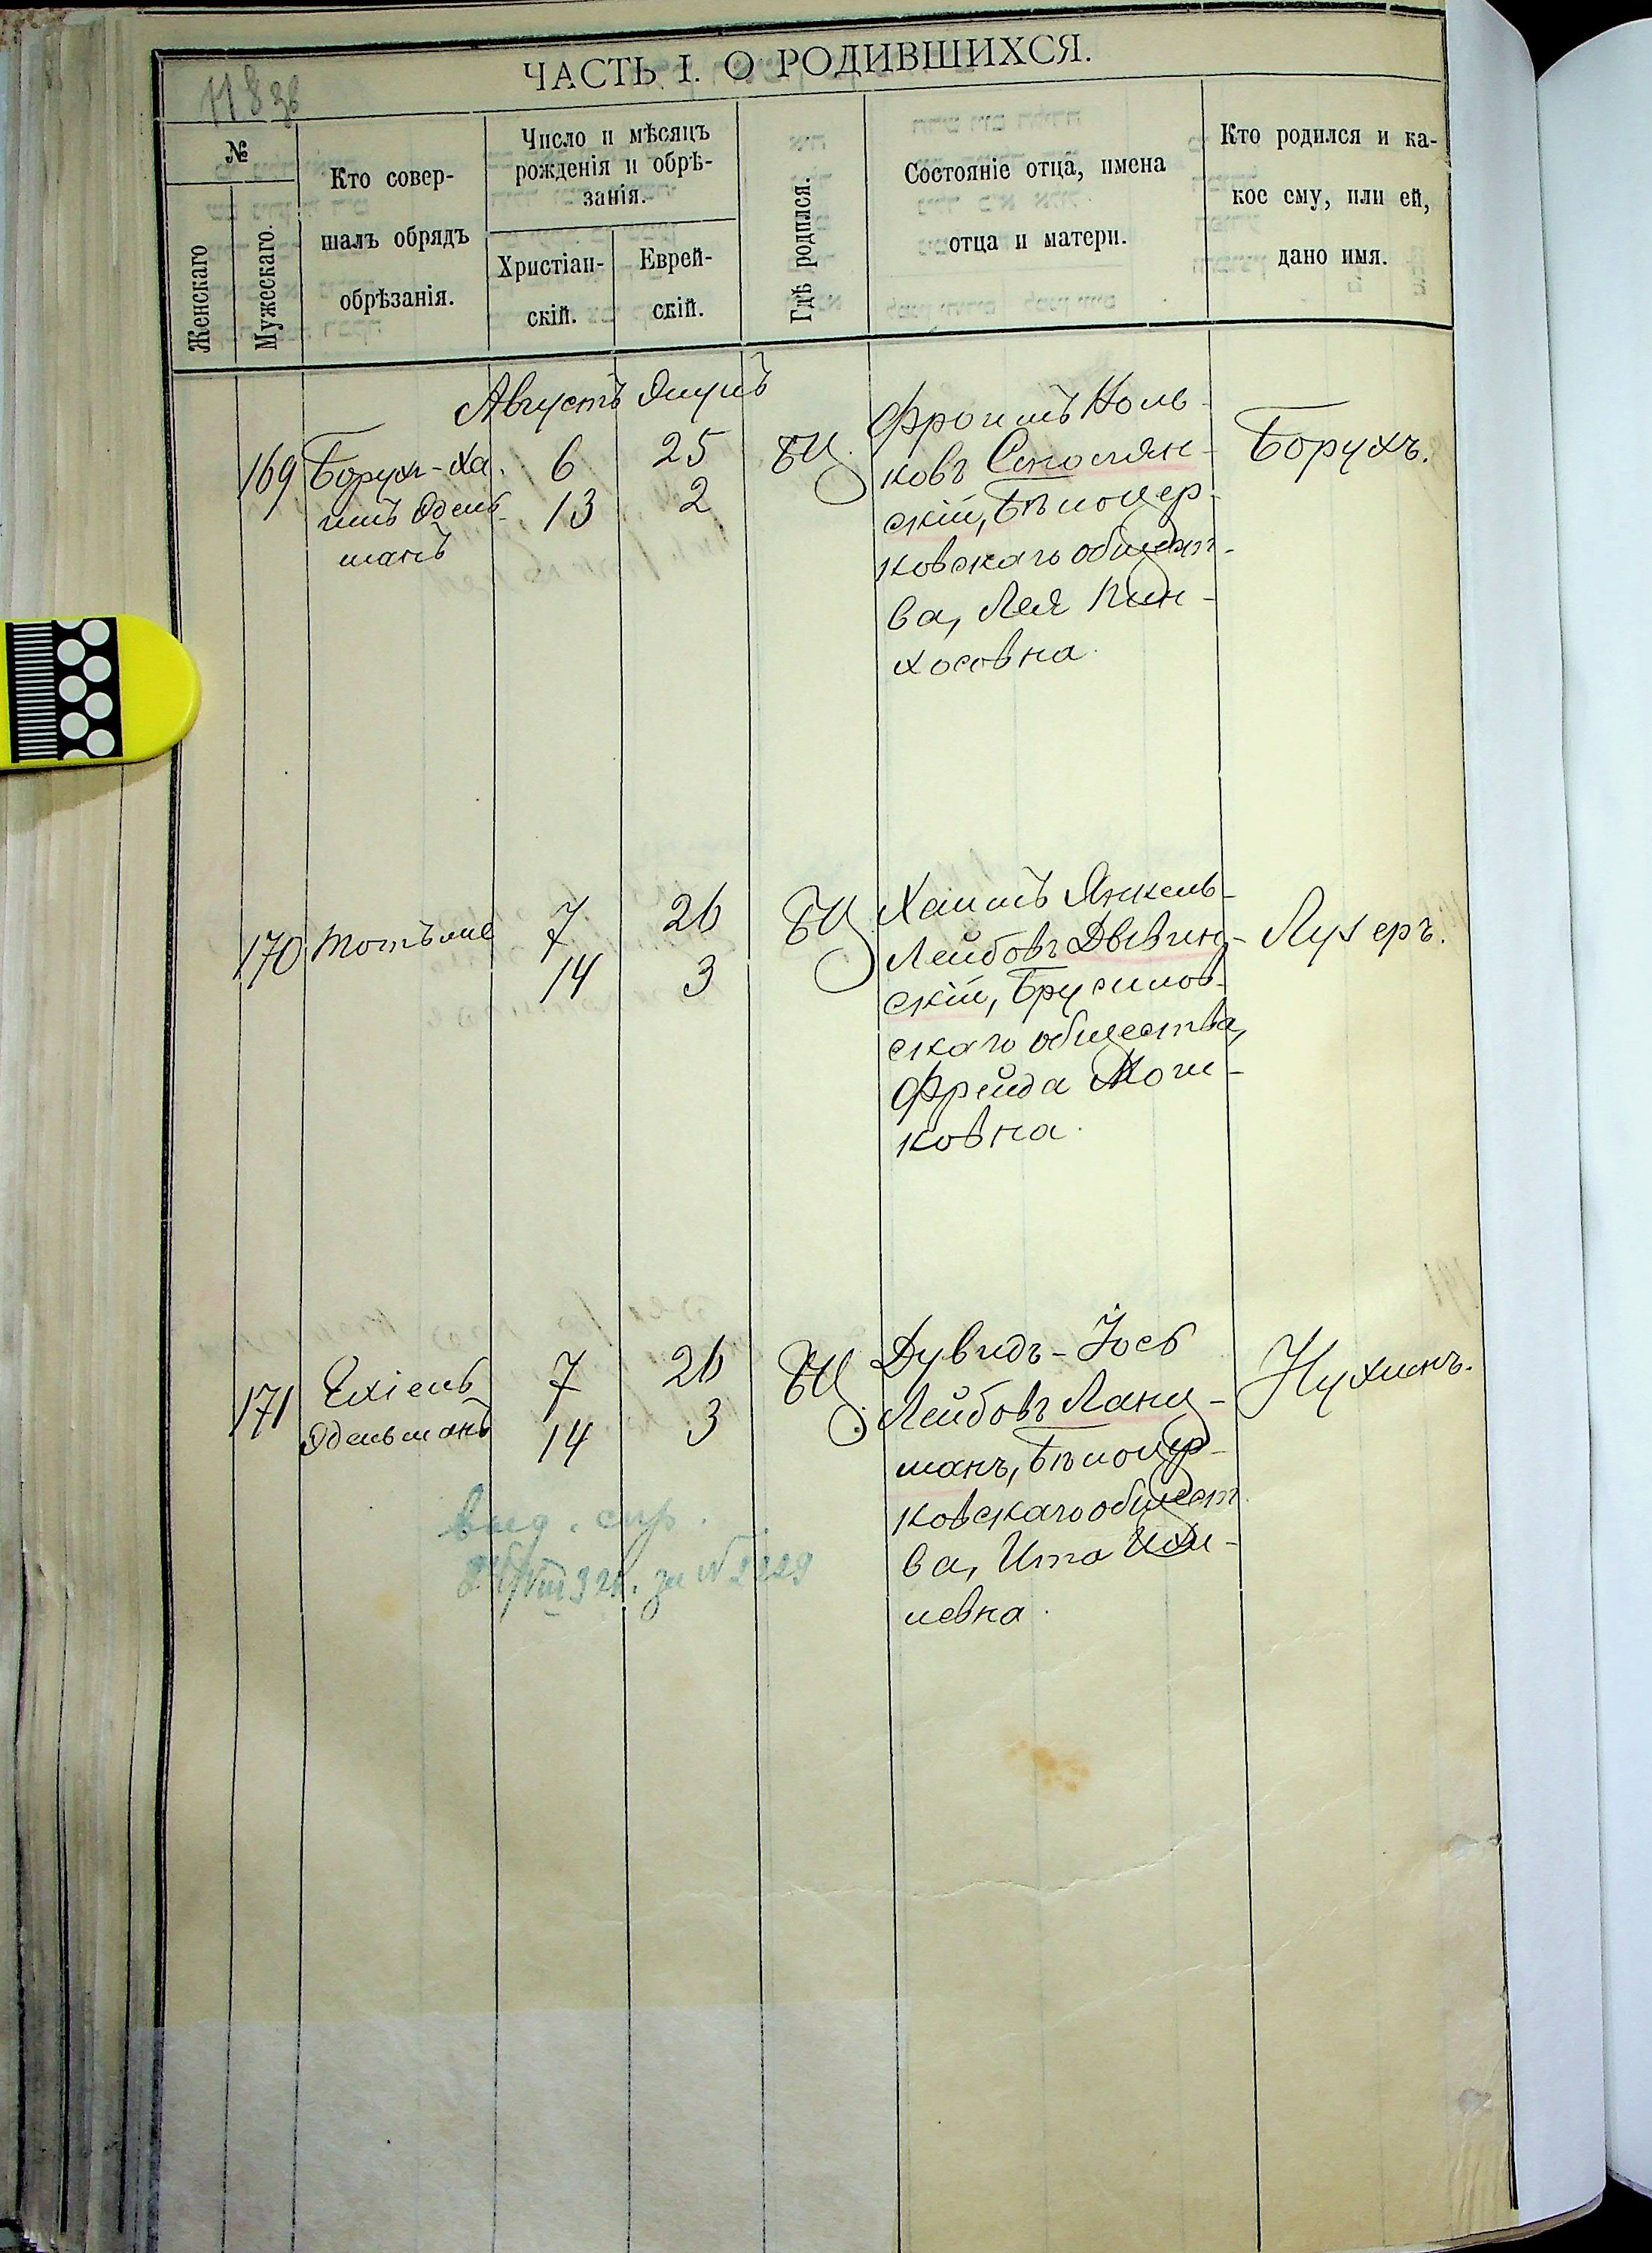 ЧАСТЬ I. О РОДИВШИХСЯ.
118 зв
№
Женскаго
Мужескаго.
Кто совер-
шалъ обрядъ
обрѣзанія.
Число и мѣсяцъ
рожденія и обрѣ-
занія.
Христіан-
скій.
Еврей-
скій.
Гдѣ родился.
Состояніе отца, имена
отца и матери.
Кто родился и ка-
кое ему, или ей,
дано имя.
Августъ
169
Борухъ-Ха-
имъ Эдель-
манъ
6
13
25
2
БЦ.
Фроимъ
ковъ
скій, Бѣлоцер-
ковскаго общест-
ва, Лея Пин-
хосовна.
Борухъ.
170
Тотъ же
7
14
26
3
БЦ.
Хаимъ Янкель-
Лейбовъ Двин-
скій, Брусилов-
скаго общества,
Фрейда Мош-
ковна.
Лузеръ.
171
Ехіель
Эдельманъ
7
14
26
3
БЦ.
Дувидъ-Іось
Лейбовъ Ланц-
манъ, Бѣлоцер-
ковскаго общест-
ва, Ита Ихи-
левна.
Нухимъ.
выд. спр.
за №